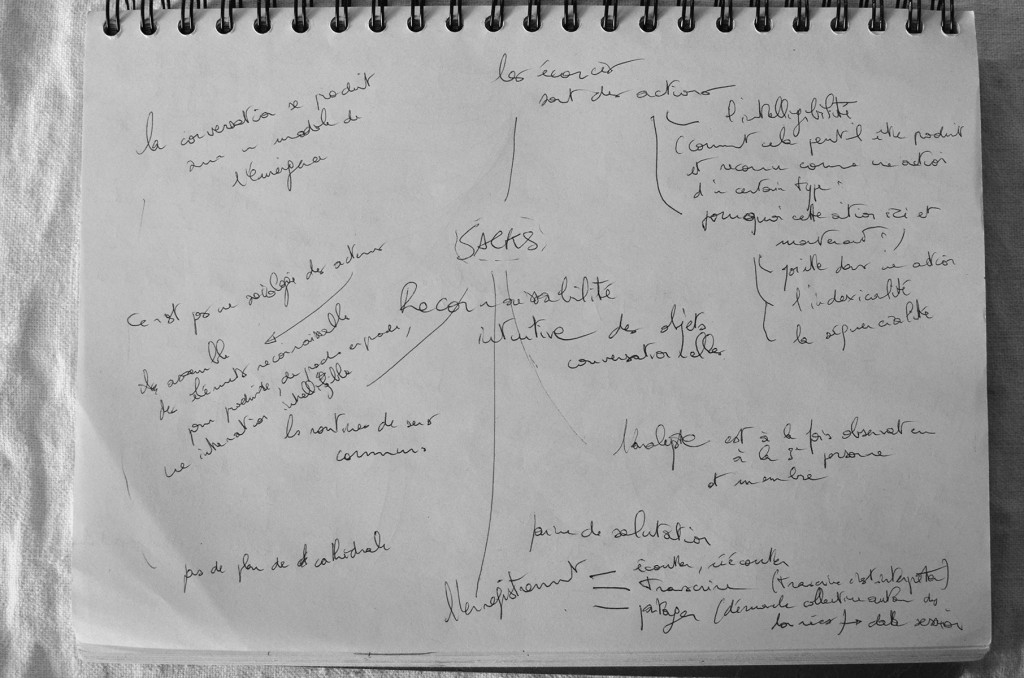 la conversation se produit
sur un modèle de
l'émergence
les énoncés
sont des actions
l'intelligibilité
(comment cela peut-il être produit
et reconnu comme une action
d'un certain type.
pourquoi cette action ici et
maintenant?)
dans une action
l'indexicalité
la séquencialité
SACKS
Reconnaissabilité
intuitive des objets
conversationnelles
ce n'est pas une sociologie des acteurs
assemble
des éléments reconnaissable
pour produire, de proche en proche,
une interaction intelligible
les routines de sens
commun
l'analyste est à la fois observateur
à la 3e personne
et membre
pas de plan de cathédrale
paire de salutation
l'enregistrement
écouter, réécouter
transcrire (transcrire c'est interpréter)
partager (démarche collective autour des
données data session